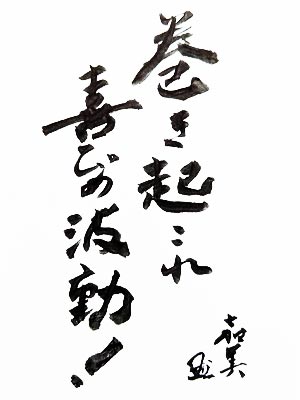 巻き起これ
喜びの波動!
嘉美